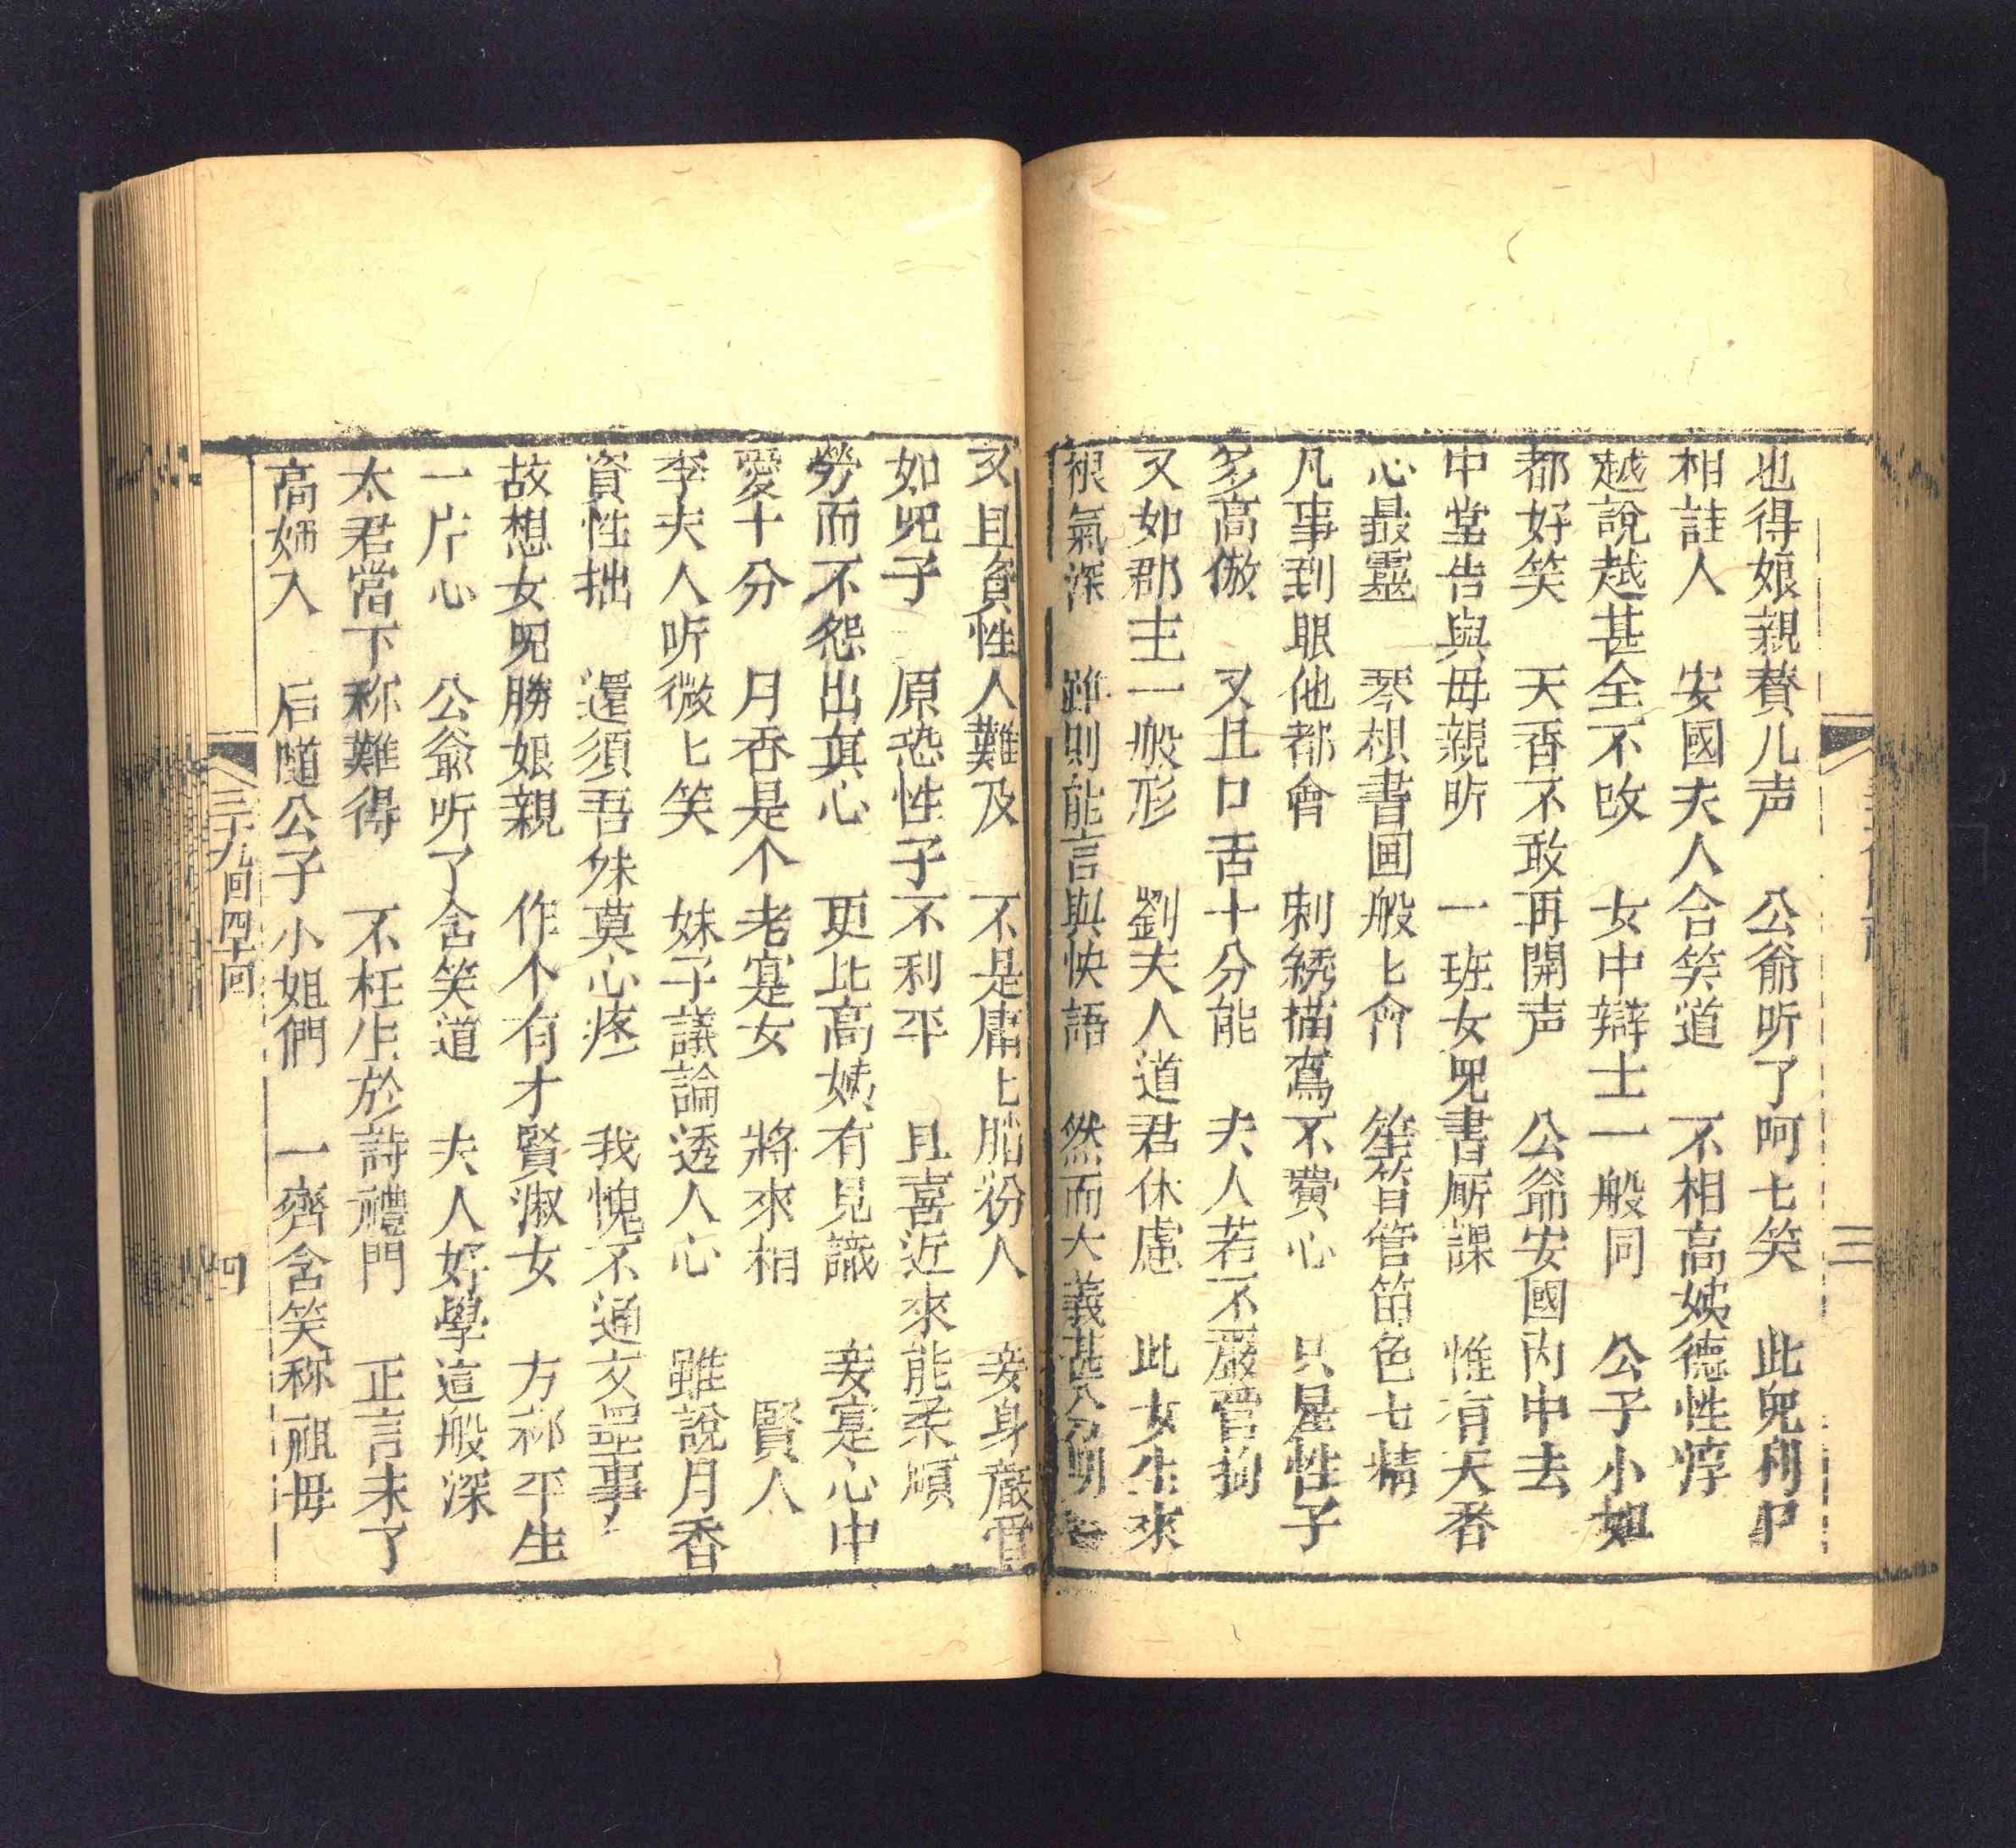 也得娘親賛儿声　公爺听了呵七笑　此兒利
相誰人　安國夫人合笑道　不相高姨德性淳
越說越甚全不改　女中辯士一般同　公子小如
都好笑　天香不敢再開声　公爺安國内中去
中堂告與毋親听　一班女兒書厨課　惟有天香
心最靈　琴棋書画般匕會　笙簫管笛色七精
凡事到眼他都會　刺綉描鸞不費心　只是性子
多高傲　又且口舌十分能　夫人若不嚴管拘
又如郡主一般形　劉夫人道君休慮　此女生來
根氣深　雖則能言與快語　然而大義甚分明
又且貟性人難及　不是庸匕脂粉人　妾身嚴管
如児子　原恐性子不利平　且喜近來能柔順
勞而不怨出真心　更比高姨有見識　妾寔心中
愛十分　月香是个老寔女　將來相　賢人
李夫人听微匕笑　妹子議論透人心　雖說月香
資性拙　還須吾妹莫心疼　我愧不通文墨事
故想女児勝娘親　作个有才賢淑女　方称平生
一片心　公爺听了含笑道　夫人好學這般深
太君當下称難得　不枉生於詩禮門　正言未了
高姉入　后隨公子小姐們　一齊含笑称祖毋
三十九回四十回
四
三